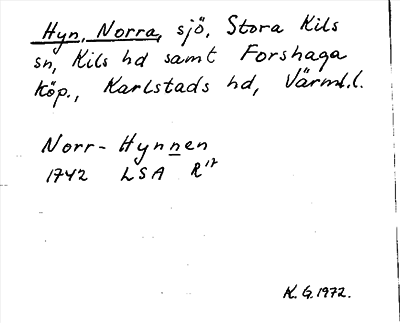 Hyn, Norra, sjö, Stora Kils
sn, Kils hd samt Forshaga
köp., Karlstads hd, Värml.l.
Norr-Hynnen
1742 LSA R17
K.G. 1972.